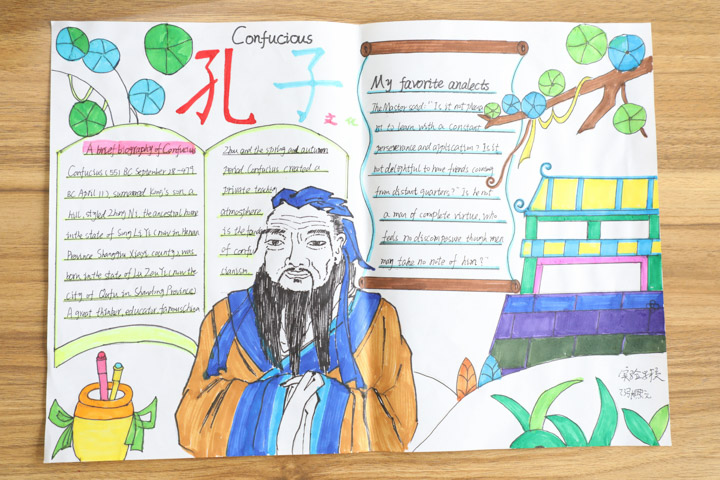 Confucious
孔子
文化
A brief biography of Confucius
Confucius (551 BC September 28-479
BC April 11), surnamed Kong's son, a
hill, styled Zhong Ni, the ancestral home
in the state of Song Li Yi (now in Henan
Province Shangqiu Xiayi county), was
born in the state of Lu Zou Yi (now the
city of Qufu in Shandong Province)
A great thinker, educator, famous
Zhou and the spring and autumn
period Confucius created a
private teaching
atmosphere
is the
of confu
cianism
My favorite analects
The Master said: "Is it not pleas
ant to learn with a constant
perseverance and application? Is it
not delightful to have friends coming
from distant quarters?" Is he not
a man of complete virtue, who
feels no discomposure though men
may take no note of him?"